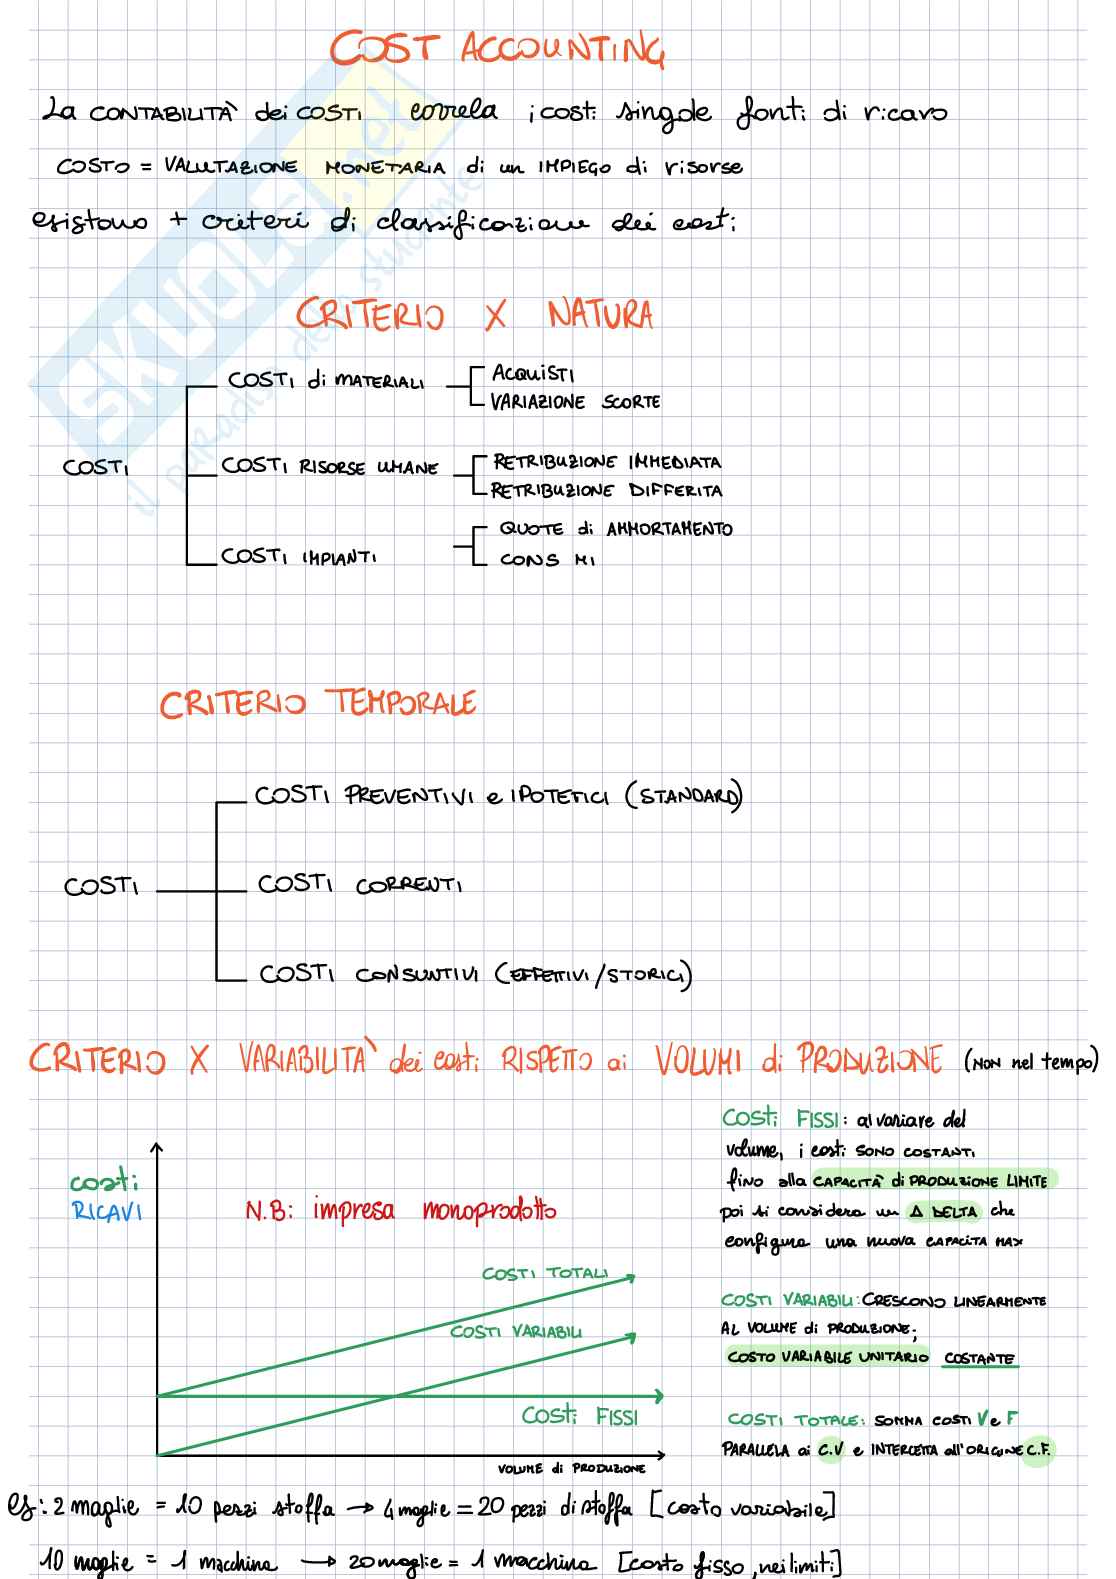 COST ACCOUNTING
La CONTABILITÀ dei COSTI correla i costi singole fonti di ricavo
COSTO = VALUTAZIONE MONETARIA di un IMPIEGO di risorse
esistono + criteri di classificazione dei costi
CRITERIO X NATURA
COSTI di MATERIALI
ACQUISTI
VARIAZIONE SCORTE
COSTI
COSTI RISORSE UMANE
RETRIBUZIONE IMMEDIATA
RETRIBUZIONE DIFFERITA
COSTI IMPIANTI
QUOTE di AMMORTAMENTO
CONS MI
CRITERIO TEMPORALE
COSTI PREVENTIVI e IPOTETICI (STANDARD)
COSTI
COSTI CORRENTI
COSTI CONSUNTIVI (EFFETTIVI/STORICI)
CRITERIO X VARIABILITÀ dei costi RISPETTO ai VOLUMI di PRODUZIONE (NON nel tempo)
costi
RICAVI
N.B: impresa monoprodotto
COSTI TOTALI
COSTI VARIABILI
COSTI FISSI
VOLUME di PRODUZIONE
COSTI FISSI: al variare del
volume, i costi SONO COSTANTI
fino alla CAPACITÀ di PRODUZIONE LIMITE
poi si considera un Δ DELTA che
configura una nuova CAPACITÀ MAX
COSTI VARIABILI: CRESCONO LINEARMENTE
AL VOLUME di PRODUZIONE;
COSTO VARIABILE UNITARIO COSTANTE
COSTI TOTALE: SOMMA COSTI V e F
PARALLELA ai C.V e INTERCETTA all'ORIGINE C.F.
es: 2 maglie = 10 pezzi stoffa → 4 maglie = 20 pezzi di stoffa [costo variabile]
10 maglie = 1 macchina → 20 maglie = 1 macchina [costo fisso, nei limiti]
SKUOLA.net
il paradiso dello studente